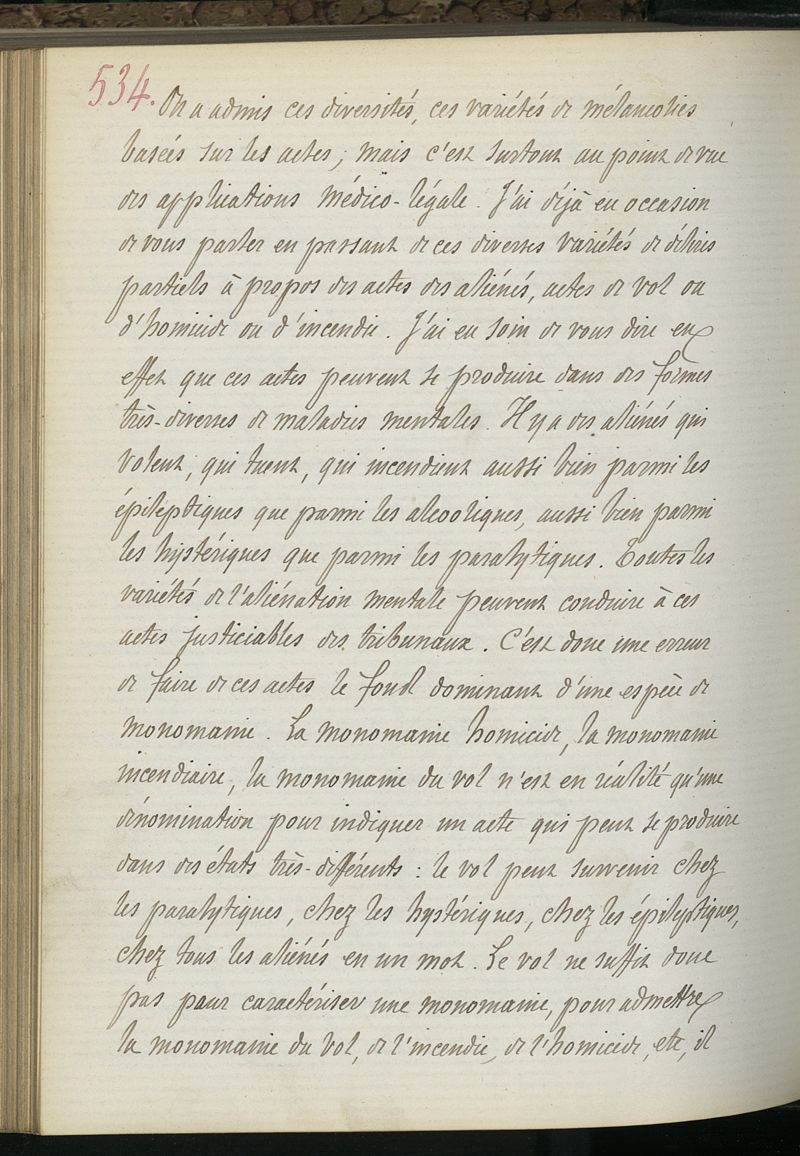 534.
On a admis ces diversités, ces variétés de mélancolies
basées sur les actes; mais c'est surtout au point de vue
des applications médico-légale. J'ai déjà eu occasion
de vous parler en passant de ces diverses variétés de délires
partiels à propos des actes des aliénés, actes de vol ou
d'homicide ou d'incendie. J'ai eu soin de vous dire en
effet que ces actes peuvent se produire dans des formes
très-diverses de maladies mentales. Il y a des aliénés qui
volent, qui tuent, qui incendient aussi bien parmi les
épileptiques que parmi les alcooliques, aussi bien parmi
les hystériques que parmi les paralytiques. Toutes les
variétés de l'aliénation mentale peuvent conduire à ces
actes justiciables des tribunaux. C'est donc une erreur
de faire de ces actes le fond dominant d'une espèce de
monomanie. La monomanie homicide, la monomanie
incendiaire, la monomanie du vol n'est en réalité qu'une
dénomination pour indiquer un acte qui peut se produire
dans des états très-différents : le vol peut survenir chez
les paralytiques, chez les hystériques, chez les épileptiques,
chez tous les aliénés en un mot. Le vol ne suffit donc
pas pour caractériser une monomanie, pour admettre
la monomanie du vol, de l'incendie, de l'homicide, etc, il